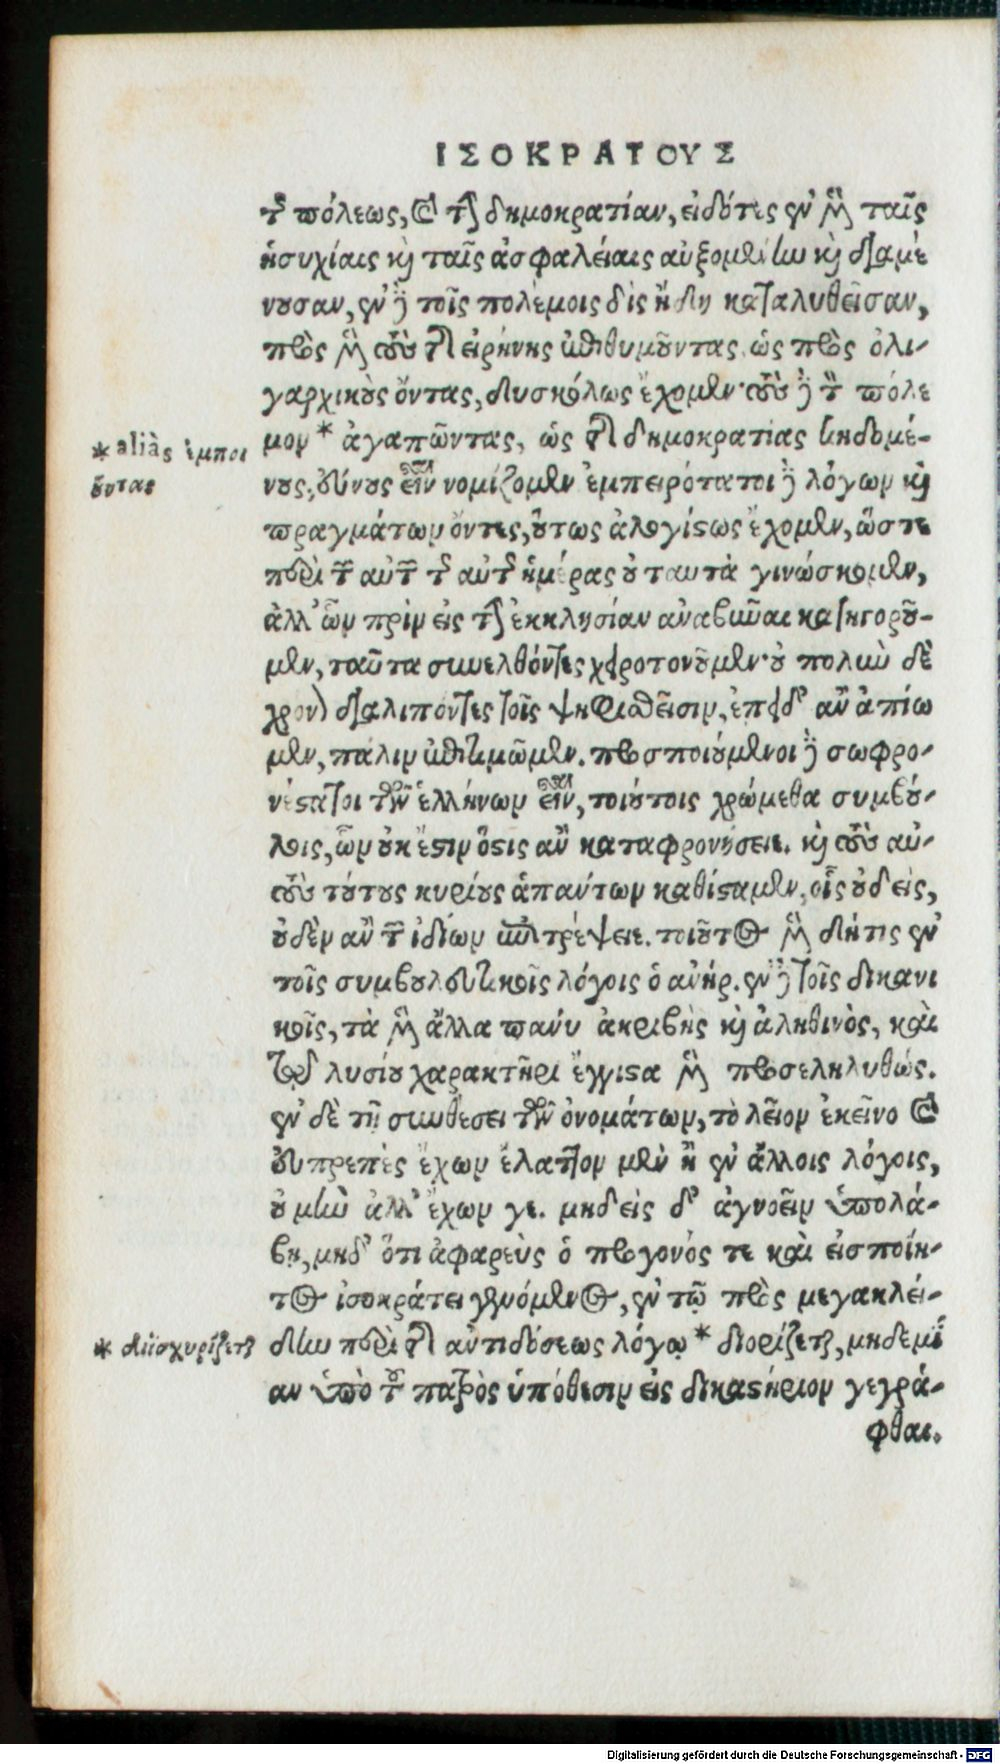 ΙΣΟΚΡΑΤΟΥΣ
τῆς πόλεως, καὶ τὴν δημοκρατίαν, εἰδότες ἐν μὲν ταῖς
ἡσυχίαις καὶ ταῖς ἀσφαλείαις αὐξομένην καὶ διαμέ
νουσαν, ἐν δὲ τοῖς πολέμοις δὶς ἤδη καταλυθεῖσαν,
πρὸς μὲν τοὺς τῆς εἰρήνης ἐπιθυμοῦντας, ὡς πρὸς ὀλι-
γαρχικοὺς ὄντας, δυσκόλως ἔχομεν· τοὺς δὲ τὸν πόλε
μον * ἀγαπῶντας, ὡς τῆς δημοκρατίας κηδομέ-
* aliàs ἐμποι
οῦντας
νους, εὔνους εἶναι νομίζομεν ἐμπειρότατοι δὲ λόγων καὶ
πραγμάτων ὄντες, οὕτως ἀλογίστως ἔχομεν, ὥστε
περὶ τῶν αὐτῶν τῆς αὐτῆς ἡμέρας οὐ ταυτὰ γινώσκομεν,
ἀλλ' ὧν πρὶν εἰς τὴν ἐκκλησίαν ἀναβῆναι κατηγοροῦ-
μεν, ταῦτα συνελθόντες χειροτονοῦμεν· οὐ πολὺν δὲ
χρόνον διαλιπόντες τοῖς ψηφισθεῖσιν, ἐπειδ' ἂν ἀπίω
μεν, πάλιν ἐπιτιμῶμεν. προσποιούμενοι δὲ σωφρο-
νέστατοι τῶν ἑλλήνων εἶναι, τοιούτοις χρώμεθα συμβού-
λοις, ὧν οὐκ ἔστιν ὅστις ἂν καταφρονήσειε. καὶ τοὺς αὐ-
τοὺς τούτους κυρίους ἁπάντων καθίσταμεν, οἷς οὐδεὶς,
οὐδὲν ἂν τῶν ἰδίων ἐπιτρέψειε. τοιοῦτος μὲν δή τις ἐν
τοῖς συμβουλευτικοῖς λόγοις ὁ ἀνήρ. ἐν δὲ τοῖς δικανι
κοῖς, τὰ μὲν ἄλλα πάνυ ἀκριβὴς καὶ ἀληθινὸς, καὶ
τῷ λυσίου χαρακτῆρι ἔγγιστα μὲν προσεληλυθώς.
ἐν δὲ τῇ συνθέσει τῶν ὀνομάτων, τὸ λεῖον ἐκεῖνο καὶ
εὐπρεπὲς ἔχων ἔλαττον μὲν ἢ ἐν ἄλλοις λόγοις,
οὐ μὴν ἀλλ' ἔχων γε. μηδεὶς δ' ἀγνοεῖν ὑπολά-
βῃ, μηδ' ὅτι ἀφαρεὺς ὁ πρόγονός τε καὶ εἰσποίη-
τος ἰσοκράτει γενόμενος, ἐν τῷ πρὸς μεγακλεί-
δην περὶ τῆς ἀντιδόσεως λόγῳ * διορίζεται, μηδεμί
* διϊσχυρίζεται
αν ὑπὸ τοῦ πατρὸς ὑπόθεσιν εἰς δικαστήριον γεγρά-
φθαι.
Digitalisierung gefördert durch die Deutsche Forschungsgemeinschaft - DFG